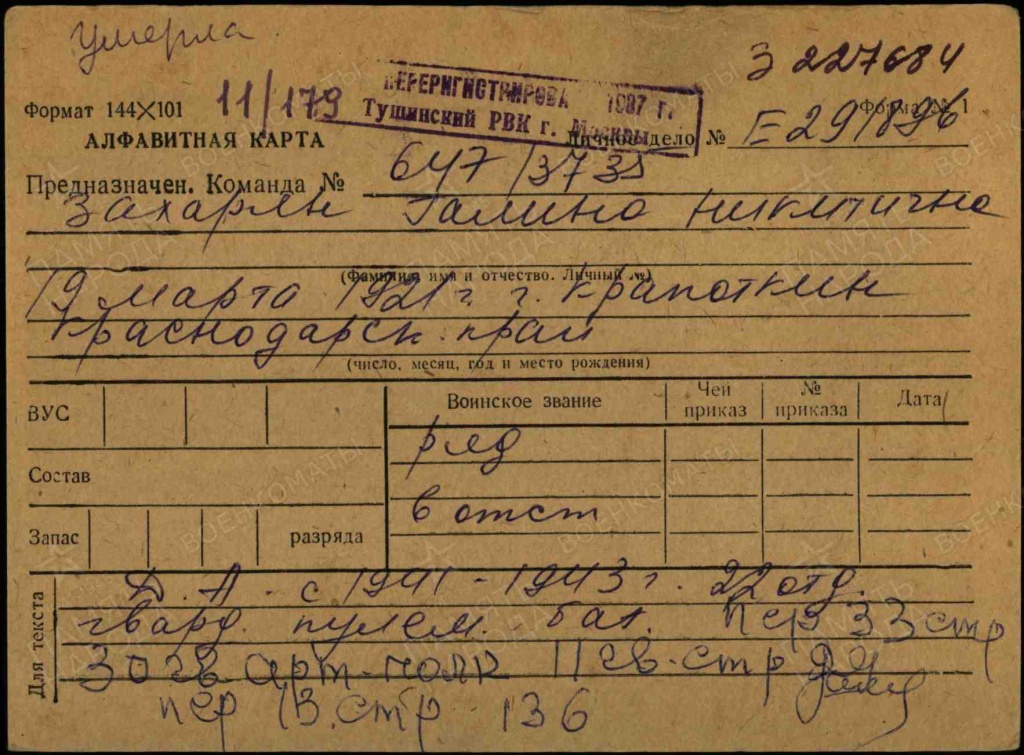 умерла
З 227684
Формат 144×101 11/179
ПЕРЕРИГИСТРИРОВА 1987 г.
Тушинский РВК г. Москвы
Форма № 1
АЛФАВИТНАЯ КАРТА
Личное дело № Е 291896
Предназначен. Команда № 647/3735
Захарян Галина Никитична
(Фамилия, имя и отчество. Личный №)
19 марта 1921 г. г. Крапоткин
Краснодарск. край
(число, месяц, год и место рождения)
ВУС
Воинское звание
Чей приказ
№ приказа
Дата
ряд
Состав
в отст
Запас разряда
Для текста
Д. А. с 1941 - 1943 г. 22 отд.
гвард. пулем. бат. пер 33 стр
30 гв арт. полк 11 гв. стр
пер 13 стр 136
ПАМЯТЬ НАРОДА
ВОЕНКОМАТЫ